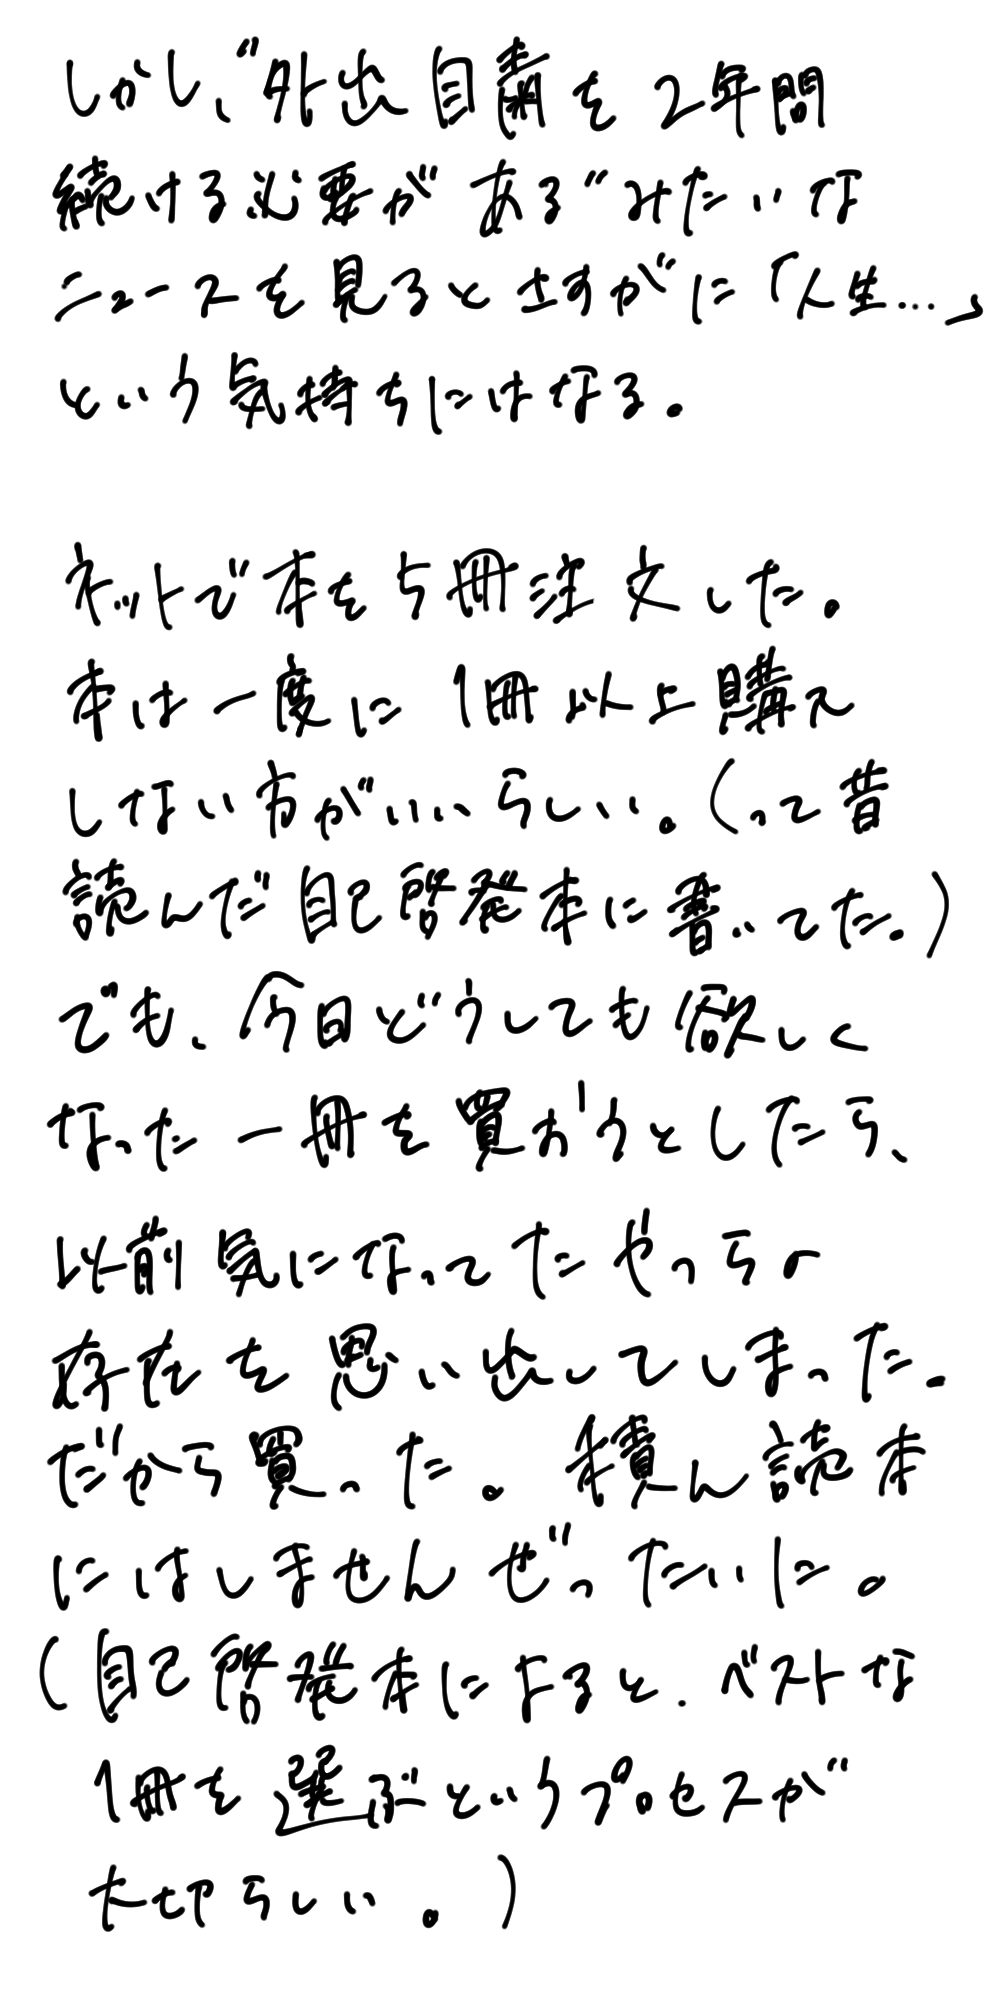 しかし、"外出自粛を2年間
続ける必要がある"みたいな
ニュースを見るとさすがに「人生…」
という気持ちにはなる。
ネットで本を5冊注文した。
本は一度に1冊以上購入
しない方がいいらしい。(って昔
読んだ自己啓発本に書いてた。)
でも、今日どうしても欲しく
なった一冊を買おうとしたら、
以前気になってたやつらの
存在を思い出してしまった。
だから買った。積ん読本
にはしませんぜったいに。
(自己啓発本によると、ベストな
1冊を選ぶというプロセスが
大切らしい。)